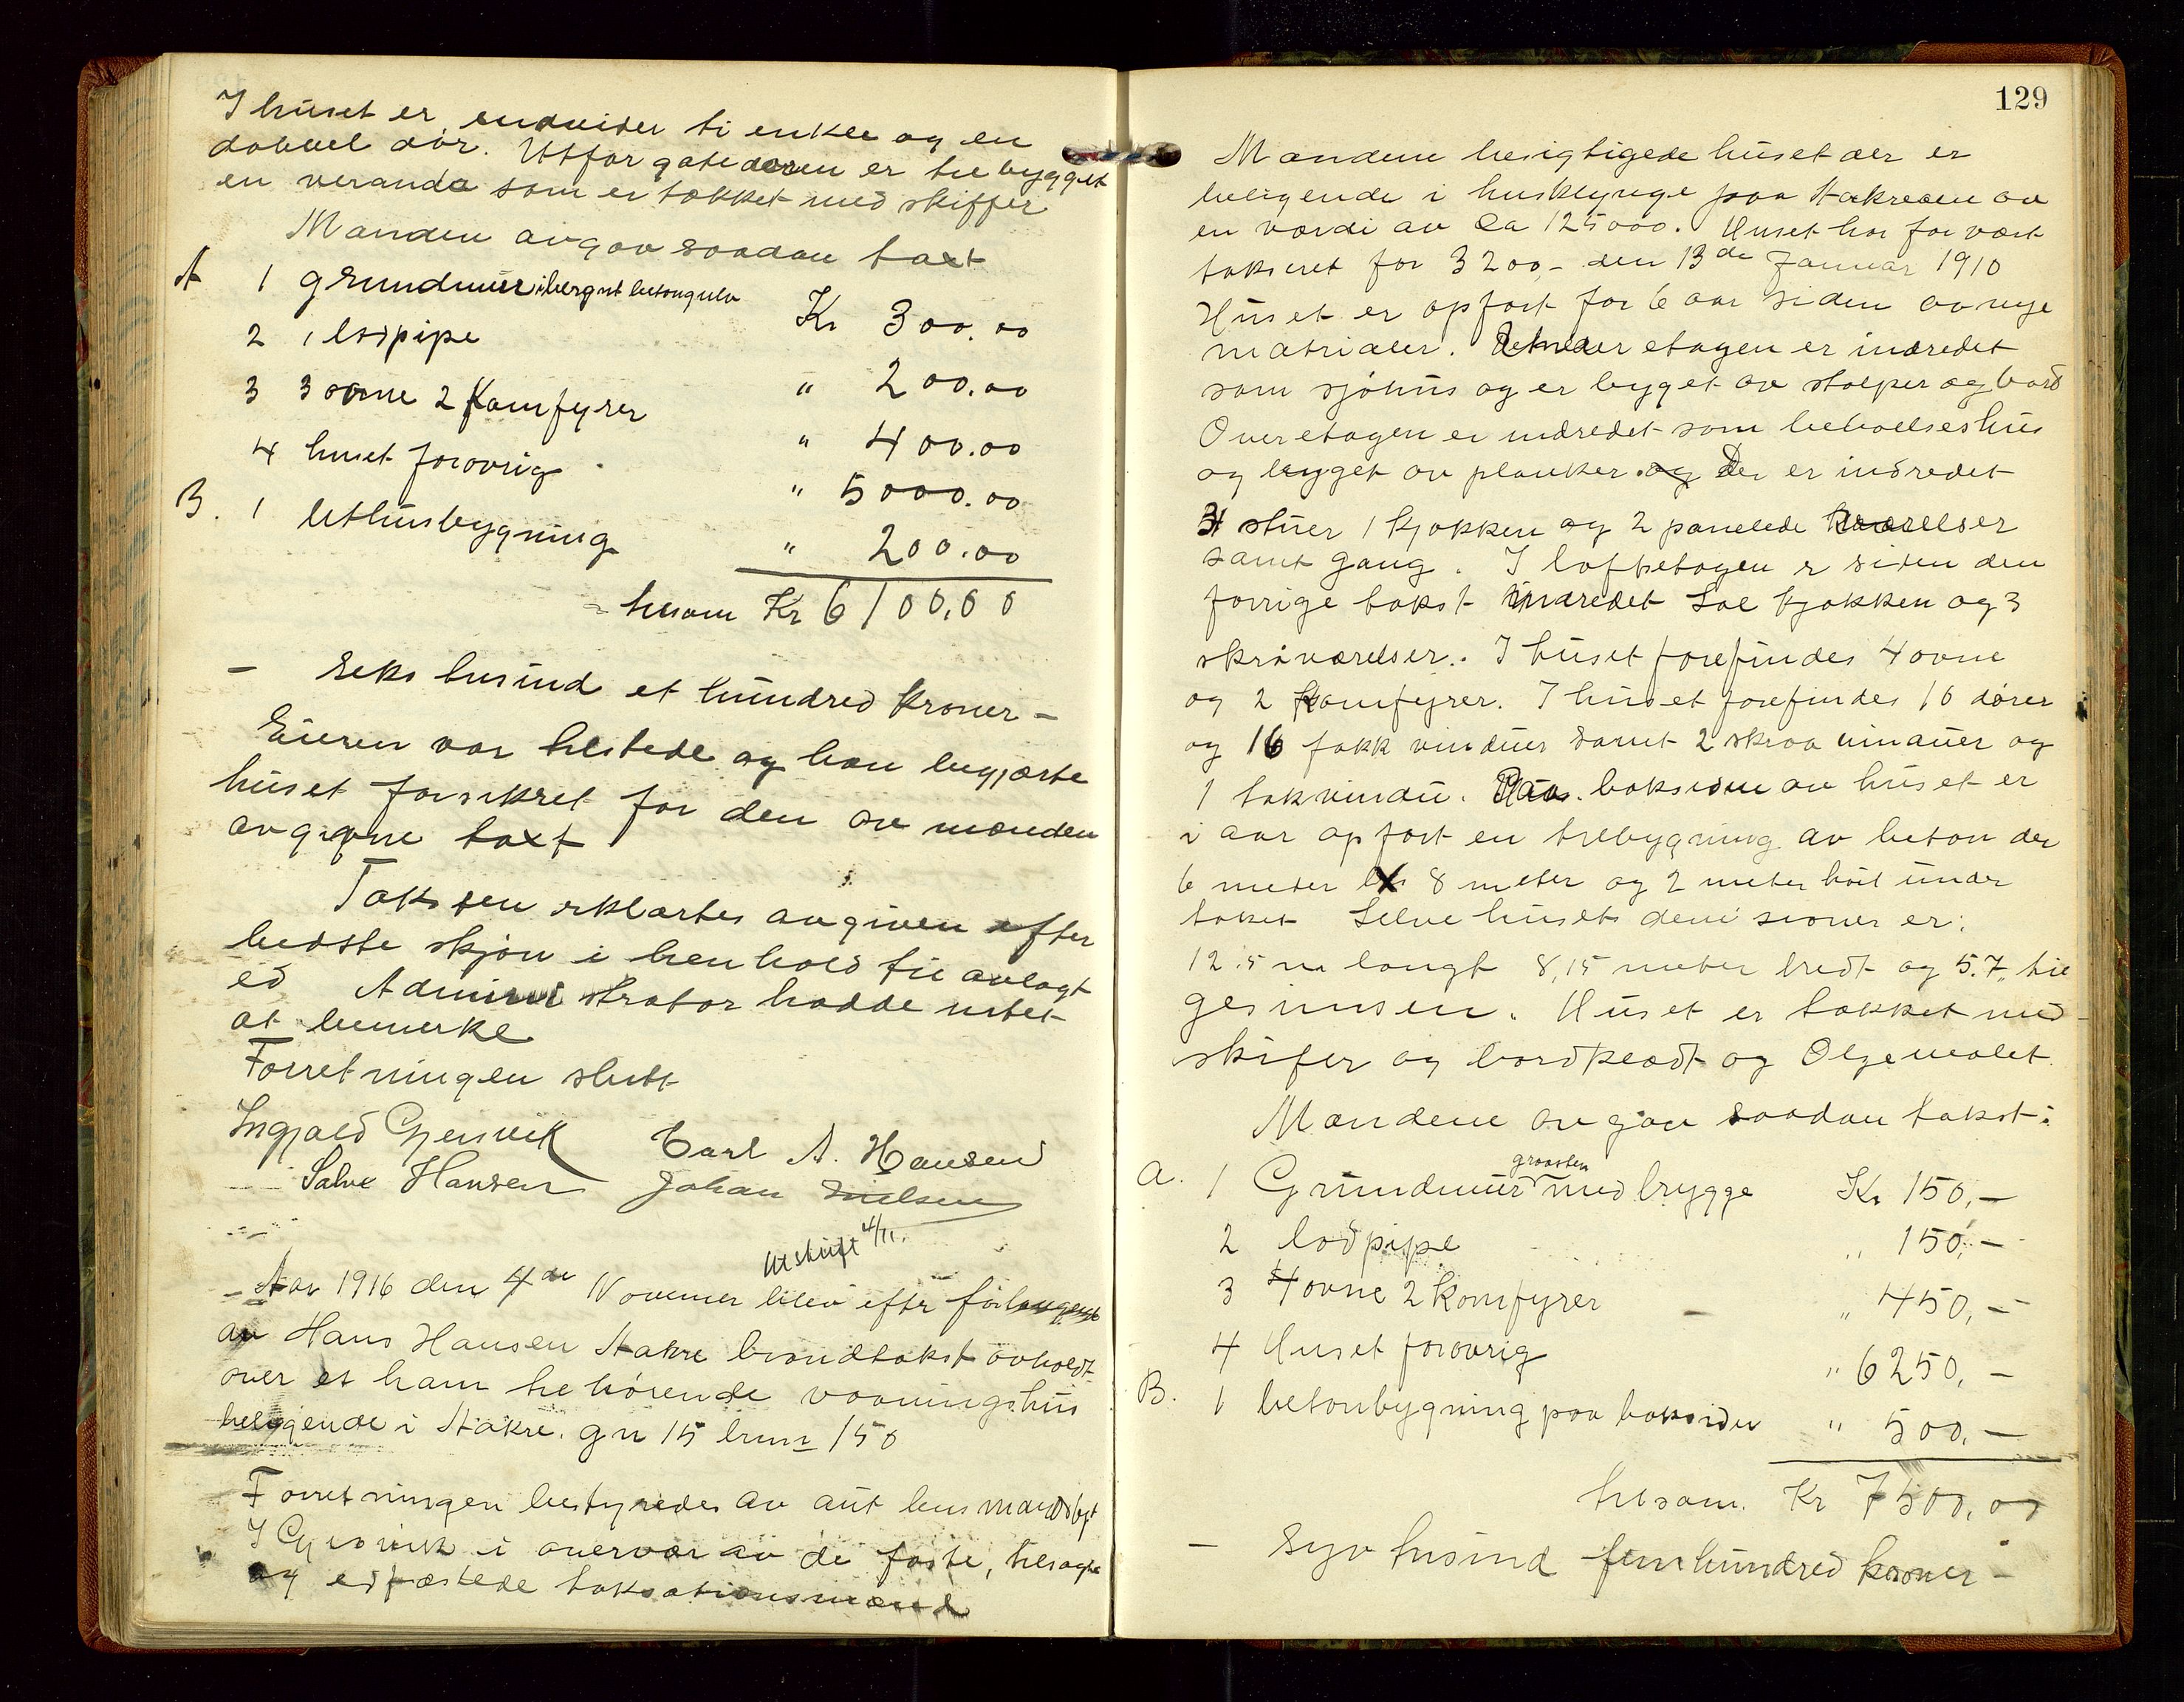 I huset er endvider ti enkle og en
dobbel dør. Utfor gatedøren er tilbygget
en veranda som er tækket med skiffer
Mænden avgav saadan taxt
A 1 grundmur iberegnet betongulv Kr 300.00
2 1 lodpipe " 200.00
3 3 ovne 2 Komfyrer " 400.00
4 huset forøvrig " 5000.00
B. 1 uthusbygning " 200.00
tilsam Kr 6100,00
- Seks tusind et hundred Kroner -
Eieren var tilstede og han begjærte
huset forsikret for den av mænden
avgivne taxt
Taksten erklærtes avgiven efter
bedste skjøn i henhold til avlagt
ed Administrator hadde intet
at bemerke
Forretningen slutt
Ingvald Gjersvik Carl A. Hansen
Salve Hansen Johan Nielsen
Utskrift 4/11.
- Aar 1916 den 4de Novemer blev efter forlangende
av Hans Hansen Aakre brandtakst avholdt
over et ham tilhørende vaaningshus
beliggende i Aakre. gn 15 brun 150
Forretningen bestyredes av aut lensmandsbgt
I Gjersvik i overvær av de faste, tilsagte
og edfæstede taksationsmænd
129
Mændene besigtigede huset der er
beligende i husklynge paa Aakreøen av
en værdi av Ca 125000. Huset har før vært
takseret for 3200,- den 13de Januar 1910
Huset er opført for 6 aar siden av nye
matrialer. Ætagen er indredet
som sjøhus og er bygget av stolper og bord
Overetagen er indredet som beboelseshus
og bygget av planker. og Der er indredet
3 stuer 1 kjøkken og 2 panelede værelser
samt gang. I loftsetagen er siden den
forrige takst indredet Sal kjøkken og 3
skråværelser. I huset forefindes 4 ovne
og 2 Komfyrer. I huset forefindes 10 dører
og 16 fakk vinduer samt 2 skraa vinduer og
1 takvindu. Paa baksiden av huset er
i aar opført en tilbygning av beton der
6 meter x 8 meter og 2 meter høit under
taket Selve husets demisioner er:
12.5 m langt 8,15 meter bredt og 5.7. til
gesimsen. Huset er tækket med
skifer og bordklædt og Oljemalet.
Mændene avgav saadan takst:
a. 1 Grundmur graasten med brygge Kr 150,-
2 lodpipe " 150,-
3 4 ovne 2 komfyrer - " 450,-
4 Huset forøvrig " 6250,-
B. 1 betonbygning paa baksiden " 500,-
tilsam. Kr 7500,00
- Syv tusind femhundred kroner -